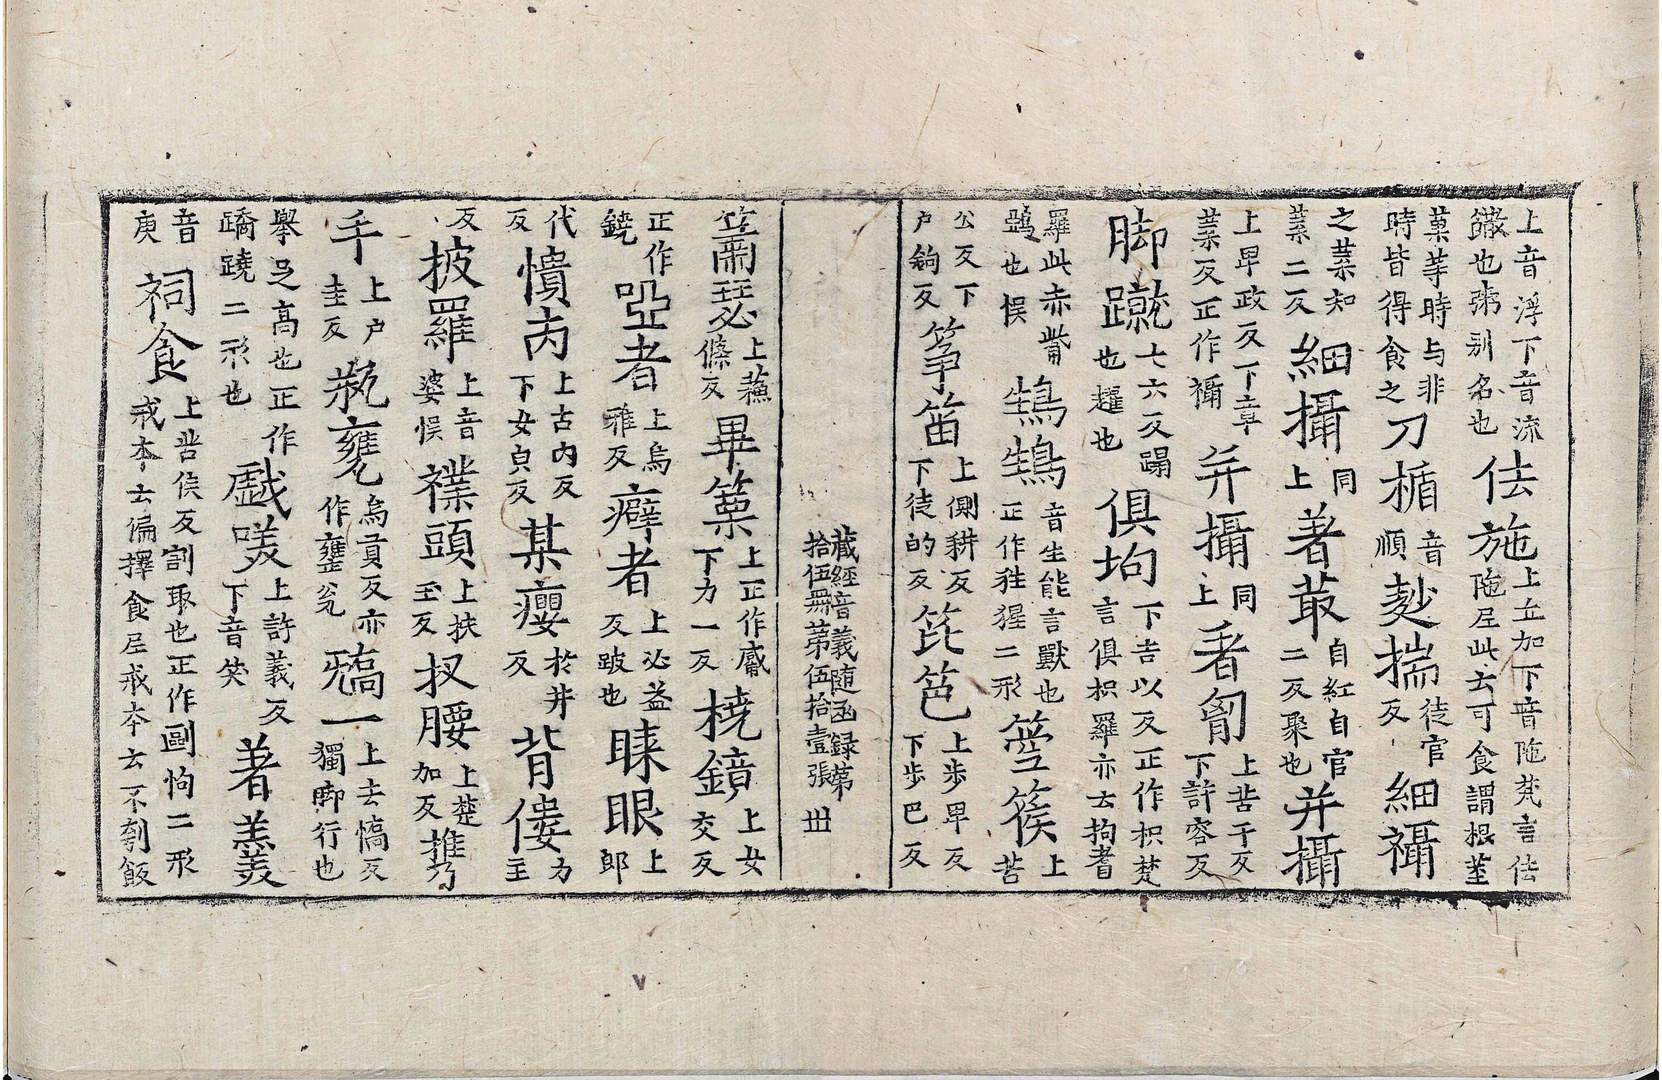 上音浮下音流
䭔也粥别名也
佉施
上丘加下音陁梵言佉
陁尼此云可食謂根莖
菓等時与非
時皆得食之
刀楯
音
順
揣
徒官
反
細襵
之葉知
葉二反
細攝
同
上
著叢
自紅自官
二反聚也
并攝
上卑政反下章
葉反正作襵
并攝
同
上
著匑
上苦于反
下許容反
脚蹴
七六反蹋
也趯也
俱抅
下吉以反正作枳梵
言俱枳羅亦云拘耆
羅此亦
鵶也悞
鵠鵠
音生能言獸也
正作狌猩二形
箜篌
上
苦
公反下
户鉤反
筝笛
上側耕反
下徒的反
箆笆
上步卑反
下步巴反
藏經音義随函録第
拾伍冊第伍拾壹張 丗
上蘓
條反
畢篥
上正作觱
下力一反
橈鏡
上女
交反
正作
鐃
啞者
上烏
雅反
癖者
上必益
反跛也
睞眼
上
郎
代
反
憒丙
上古内反
下女皃反
某癭
於井
反
背僂
力
主
反
披羅
上音
婆悞
襆頭
上扶
玉反
扠腰
上楚
加反
手
上户
圭反
甕
烏貢反亦
作甕瓮
一
上去憍反
獨脚行也
舉足高也正作
蹻蹺二形也
戲唉
上許義反
下音笑
著羡
音
庚
祠食
上苦侯反割取也正作剾怐二形
戒本云偏擇食尼戒本云不刳飯